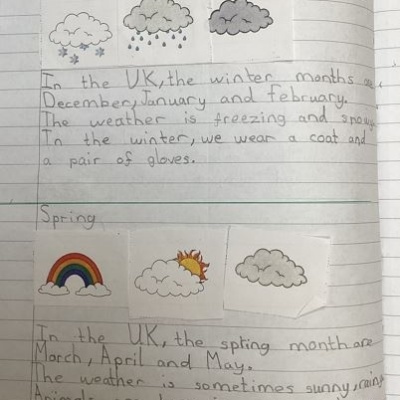 In the UK, the winter months are
December, January and february.
The weather is freezing and snowy
In the winter, we wear a coat and
a pair of gloves.
Spring
In the UK, the spring month are
March, April and May.
The weather is sometimes sunny, rainy
Animals